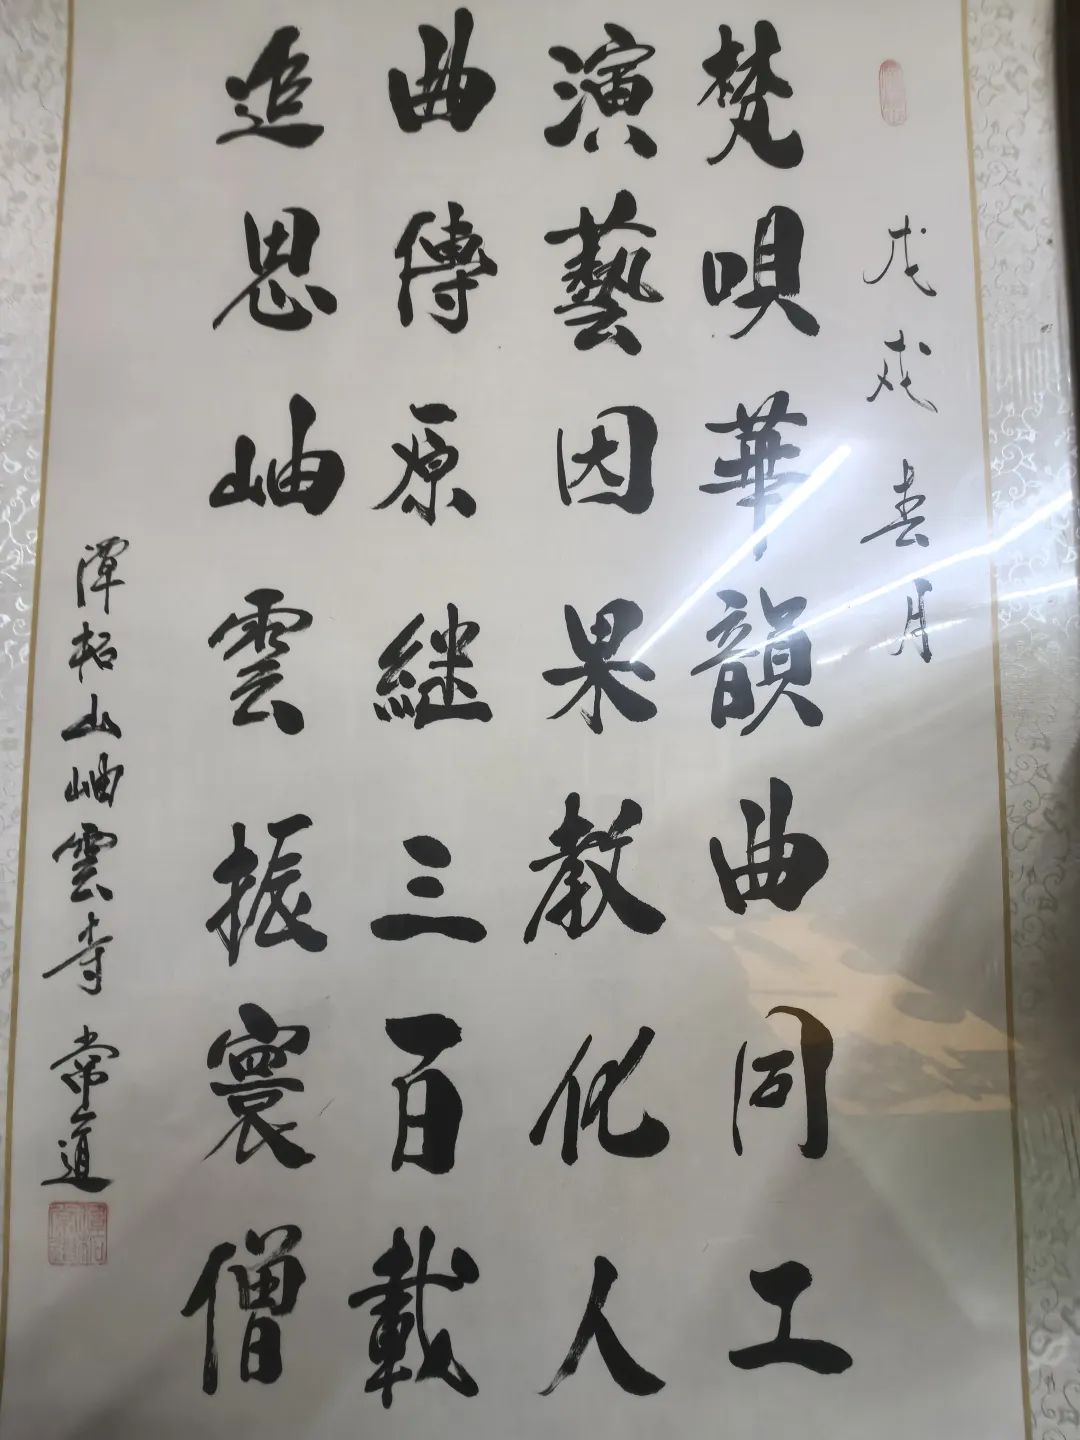 戊戌春月
梵唄華韻曲同工
演藝因果教化人
曲傳原繼三百載
追思岫雲振寰僧
潭柘山岫雲寺 常道